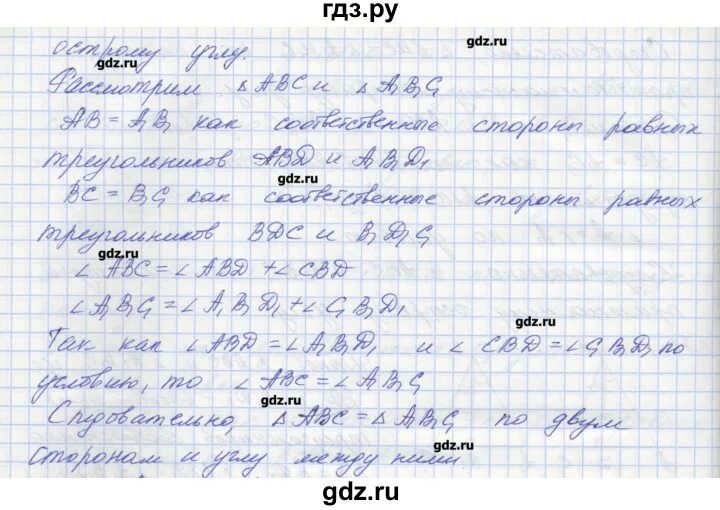 гдз.ру
острому углу.
gdz.ru
gdz.ru
Рассмотрим △ ABC и △ A₁B₁C₁
AB = A₁B₁ как соответственные стороны равных
gdz.ru
треугольников ABD и A₁B₁D₁
BC = B₁C₁ как соответственные стороны равных
gdz.ru
треугольников BDC и B₁D₁C₁
gdz.ru
∠ ABC = ∠ ABD + ∠ CBD
∠ A₁B₁C₁ = ∠ A₁B₁D₁ + ∠ C₁B₁D₁
gdz.ru
Так как ∠ ABD = ∠ A₁B₁D₁ и ∠ CBD = ∠ C₁B₁D₁ по
условию, то ∠ ABC = ∠ A₁B₁C₁
gdz.ru
Следовательно, △ ABC = △ A₁B₁C₁ по двум
gdz.ru
gdz.ru
сторонам и углу между ними
gdz.ru